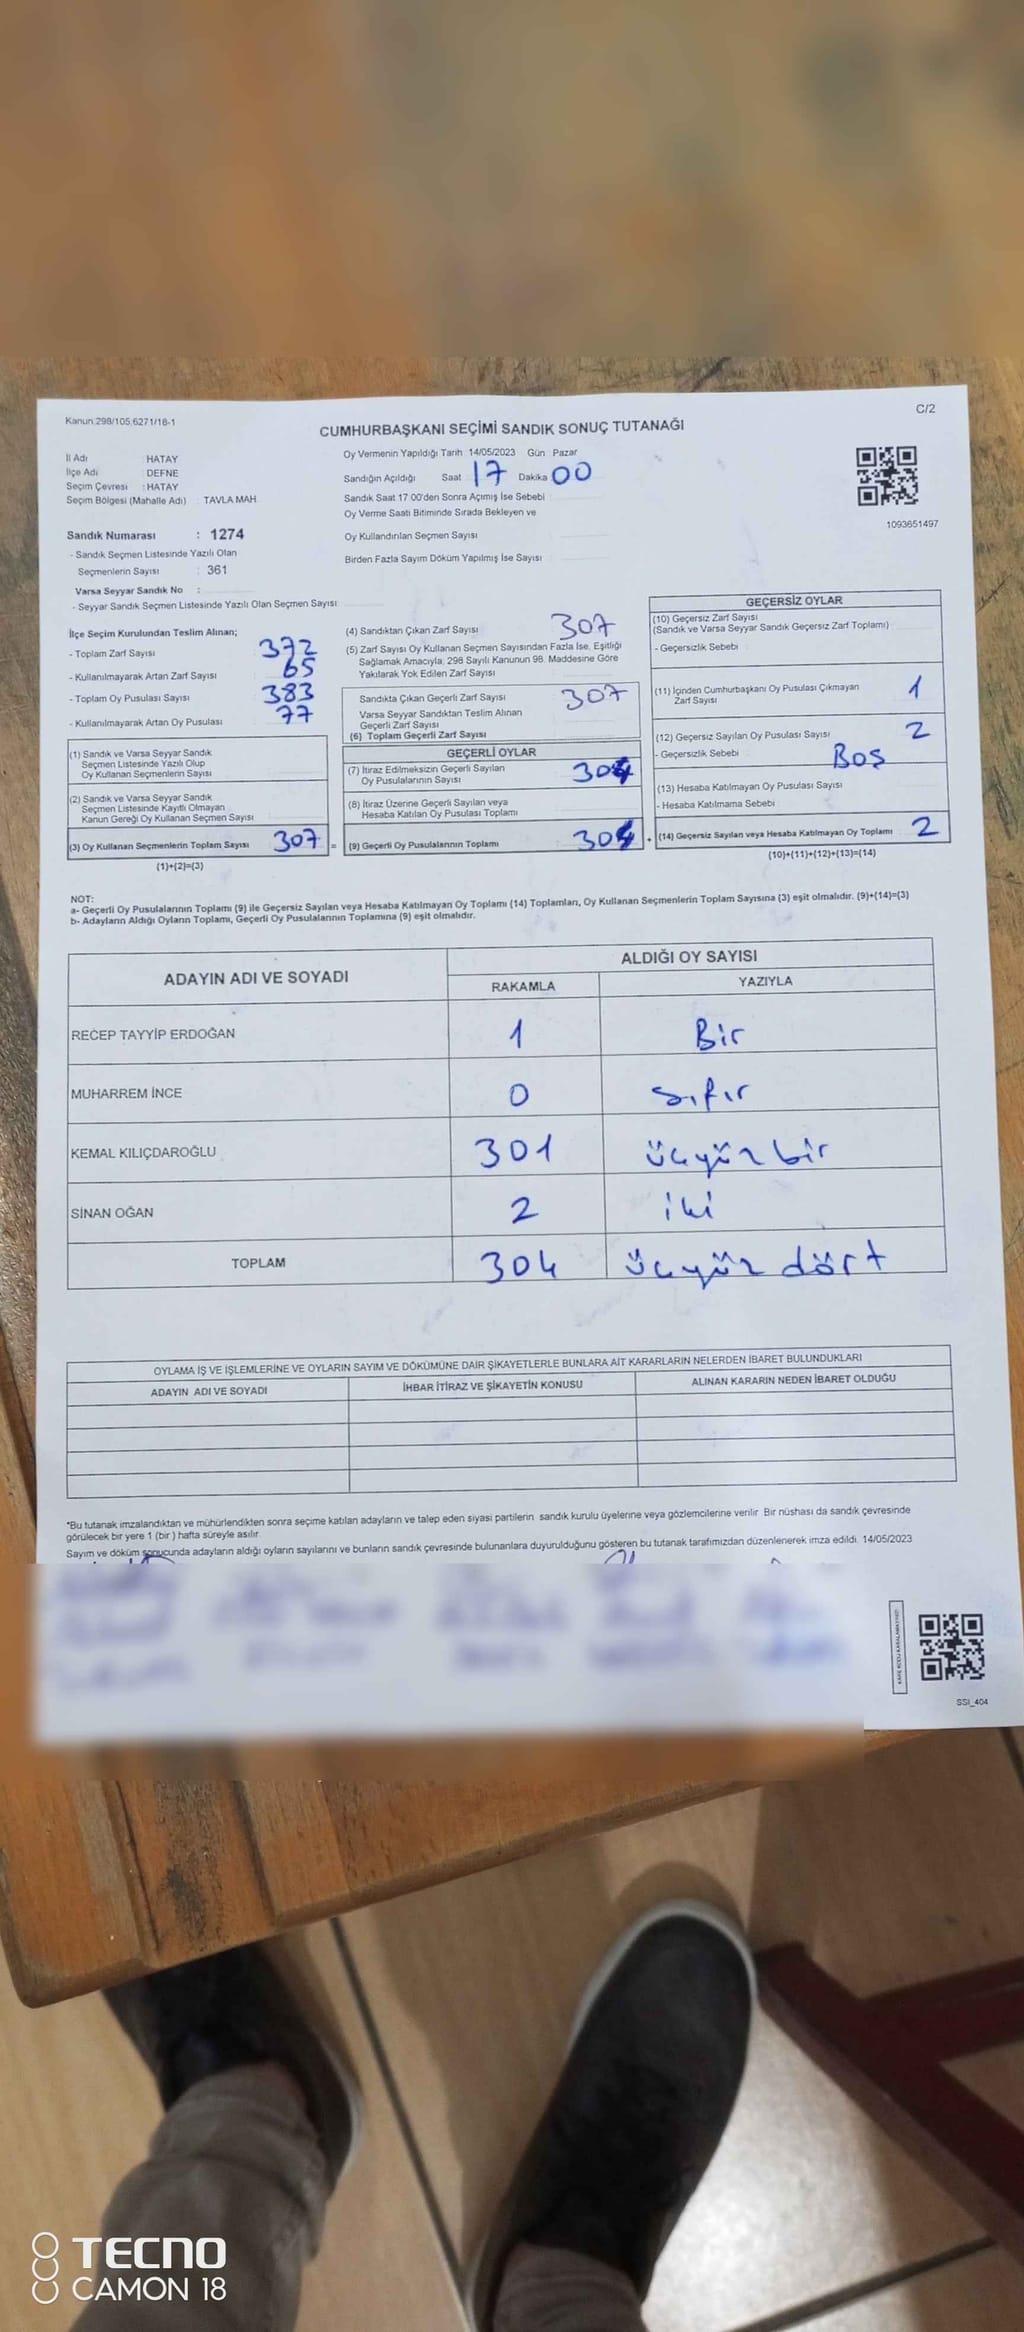 Kanun:298/105;6271/18-1
C/2
CUMHURBAŞKANI SEÇİMİ SANDIK SONUÇ TUTANAĞI
İl Adı : HATAY
İlçe Adı : DEFNE
Seçim Çevresi : HATAY
Seçim Bölgesi (Mahalle Adı) : TAVLA MAH.
Sandık Numarası : 1274
- Sandık Seçmen Listesinde Yazılı Olan
Seçmenlerin Sayısı : 361
Varsa Seyyar Sandık No :
- Seyyar Sandık Seçmen Listesinde Yazılı Olan Seçmen Sayısı:
Oy Vermenin Yapıldığı Tarih 14/05/2023 Gün Pazar
Sandığın Açıldığı Saat 17 Dakika 00
Sandık Saat 17:00'den Sonra Açımış İse Sebebi
Oy Verme Saati Bitiminde Sırada Bekleyen ve
Oy Kullandırılan Seçmen Sayısı
Birden Fazla Sayım Döküm Yapılmış İse Sayısı
1093651497
İlçe Seçim Kurulundan Teslim Alınan;
- Toplam Zarf Sayısı 372
- Kullanılmayarak Artan Zarf Sayısı 65
- Toplam Oy Pusulası Sayısı 383
- Kullanılmayarak Artan Oy Pusulası 77
(1) Sandık ve Varsa Seyyar Sandık
Seçmen Listesinde Yazılı Olup
Oy Kullanan Seçmenlerin Sayısı
(2) Sandık ve Varsa Seyyar Sandık
Seçmen Listesinde Kayıtlı Olmayan
Kanun Gereği Oy Kullanan Seçmen Sayısı
(3) Oy Kullanan Seçmenlerin Toplam Sayısı 307 =
(1)+(2)=(3)
(4) Sandıktan Çıkan Zarf Sayısı 307
(5) Zarf Sayısı Oy Kullanan Seçmen Sayısından Fazla İse, Eşitliği
Sağlamak Amacıyla; 298 Sayılı Kanunun 98. Maddesine Göre
Yakılarak Yok Edilen Zarf Sayısı
Sandıkta Çıkan Geçerli Zarf Sayısı 307
Varsa Seyyar Sandıktan Teslim Alınan
Geçerli Zarf Sayısı
(6) Toplam Geçerli Zarf Sayısı
GEÇERLİ OYLAR
(7) İtiraz Edilmeksizin Geçerli Sayılan
Oy Pusulalarının Sayısı 304
(8) İtiraz Üzerine Geçerli Sayılan veya
Hesaba Katılan Oy Pusulası Toplamı
(9) Geçerli Oy Pusulalarının Toplamı 304 +
GEÇERSİZ OYLAR
(10) Geçersiz Zarf Sayısı
(Sandık ve Varsa Seyyar Sandık Geçersiz Zarf Toplamı)
- Geçersizlik Sebebi
(11) İçinden Cumhurbaşkanı Oy Pusulası Çıkmayan
Zarf Sayısı 1
(12) Geçersiz Sayılan Oy Pusulası Sayısı 2
- Geçersizlik Sebebi Boş
(13) Hesaba Katılmayan Oy Pusulası Sayısı
- Hesaba Katılmama Sebebi
(14) Geçersiz Sayılan veya Hesaba Katılmayan Oy Toplamı 2
(10)+(11)+(12)+(13)=(14)
NOT:
a- Geçerli Oy Pusulalarının Toplamı (9) ile Geçersiz Sayılan veya Hesaba Katılmayan Oy Toplamı (14) Toplamları, Oy Kullanan Seçmenlerin Toplam Sayısına (3) eşit olmalıdır. (9)+(14)=(3)
b- Adayların Aldığı Oyların Toplamı, Geçerli Oy Pusulalarının Toplamına (9) eşit olmalıdır.
ADAYIN ADI VE SOYADI ALDIĞI OY SAYISI
RAKAMLA YAZIYLA
RECEP TAYYİP ERDOĞAN 1 Bir
MUHARREM İNCE 0 sıfır
KEMAL KILIÇDAROĞLU 301 üçyüz bir
SİNAN OĞAN 2 iki
TOPLAM 304 üçyüz dört
OYLAMA İŞ VE İŞLEMLERİNE VE OYLARIN SAYIM VE DÖKÜMÜNE DAİR ŞİKAYETLERLE BUNLARA AİT KARARLARIN NELERDEN İBARET BULUNDUKLARI
ADAYIN ADI VE SOYADI İHBAR İTİRAZ VE ŞİKAYETİN KONUSU ALINAN KARARIN NEDEN İBARET OLDUĞU
*Bu tutanak imzalandıktan ve mühürlendikten sonra seçime katılan adayların ve talep eden siyasi partilerin sandık kurulu üyelerine veya gözlemcilerine verilir. Bir nüshası da sandık çevresinde
görülecek bir yere 1 (bir) hafta süreyle asılır.
Sayım ve döküm sonucunda adayların aldığı oyların sayılarını ve bunların sandık çevresinde bulunanlara duyurulduğunu gösteren bu tutanak tarafımızdan düzenlenerek imza edildi. 14/05/2023
SSI_404
TECNO
CAMON 18